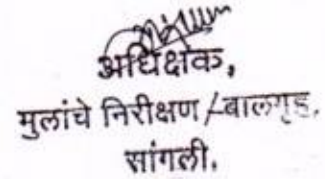 अधिक्षक,
मुलांचे निरीक्षण /बालगृह,
सांगली.